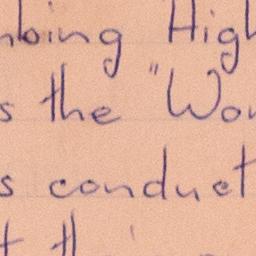 bing High
s the "Wor
s conduct
t thi